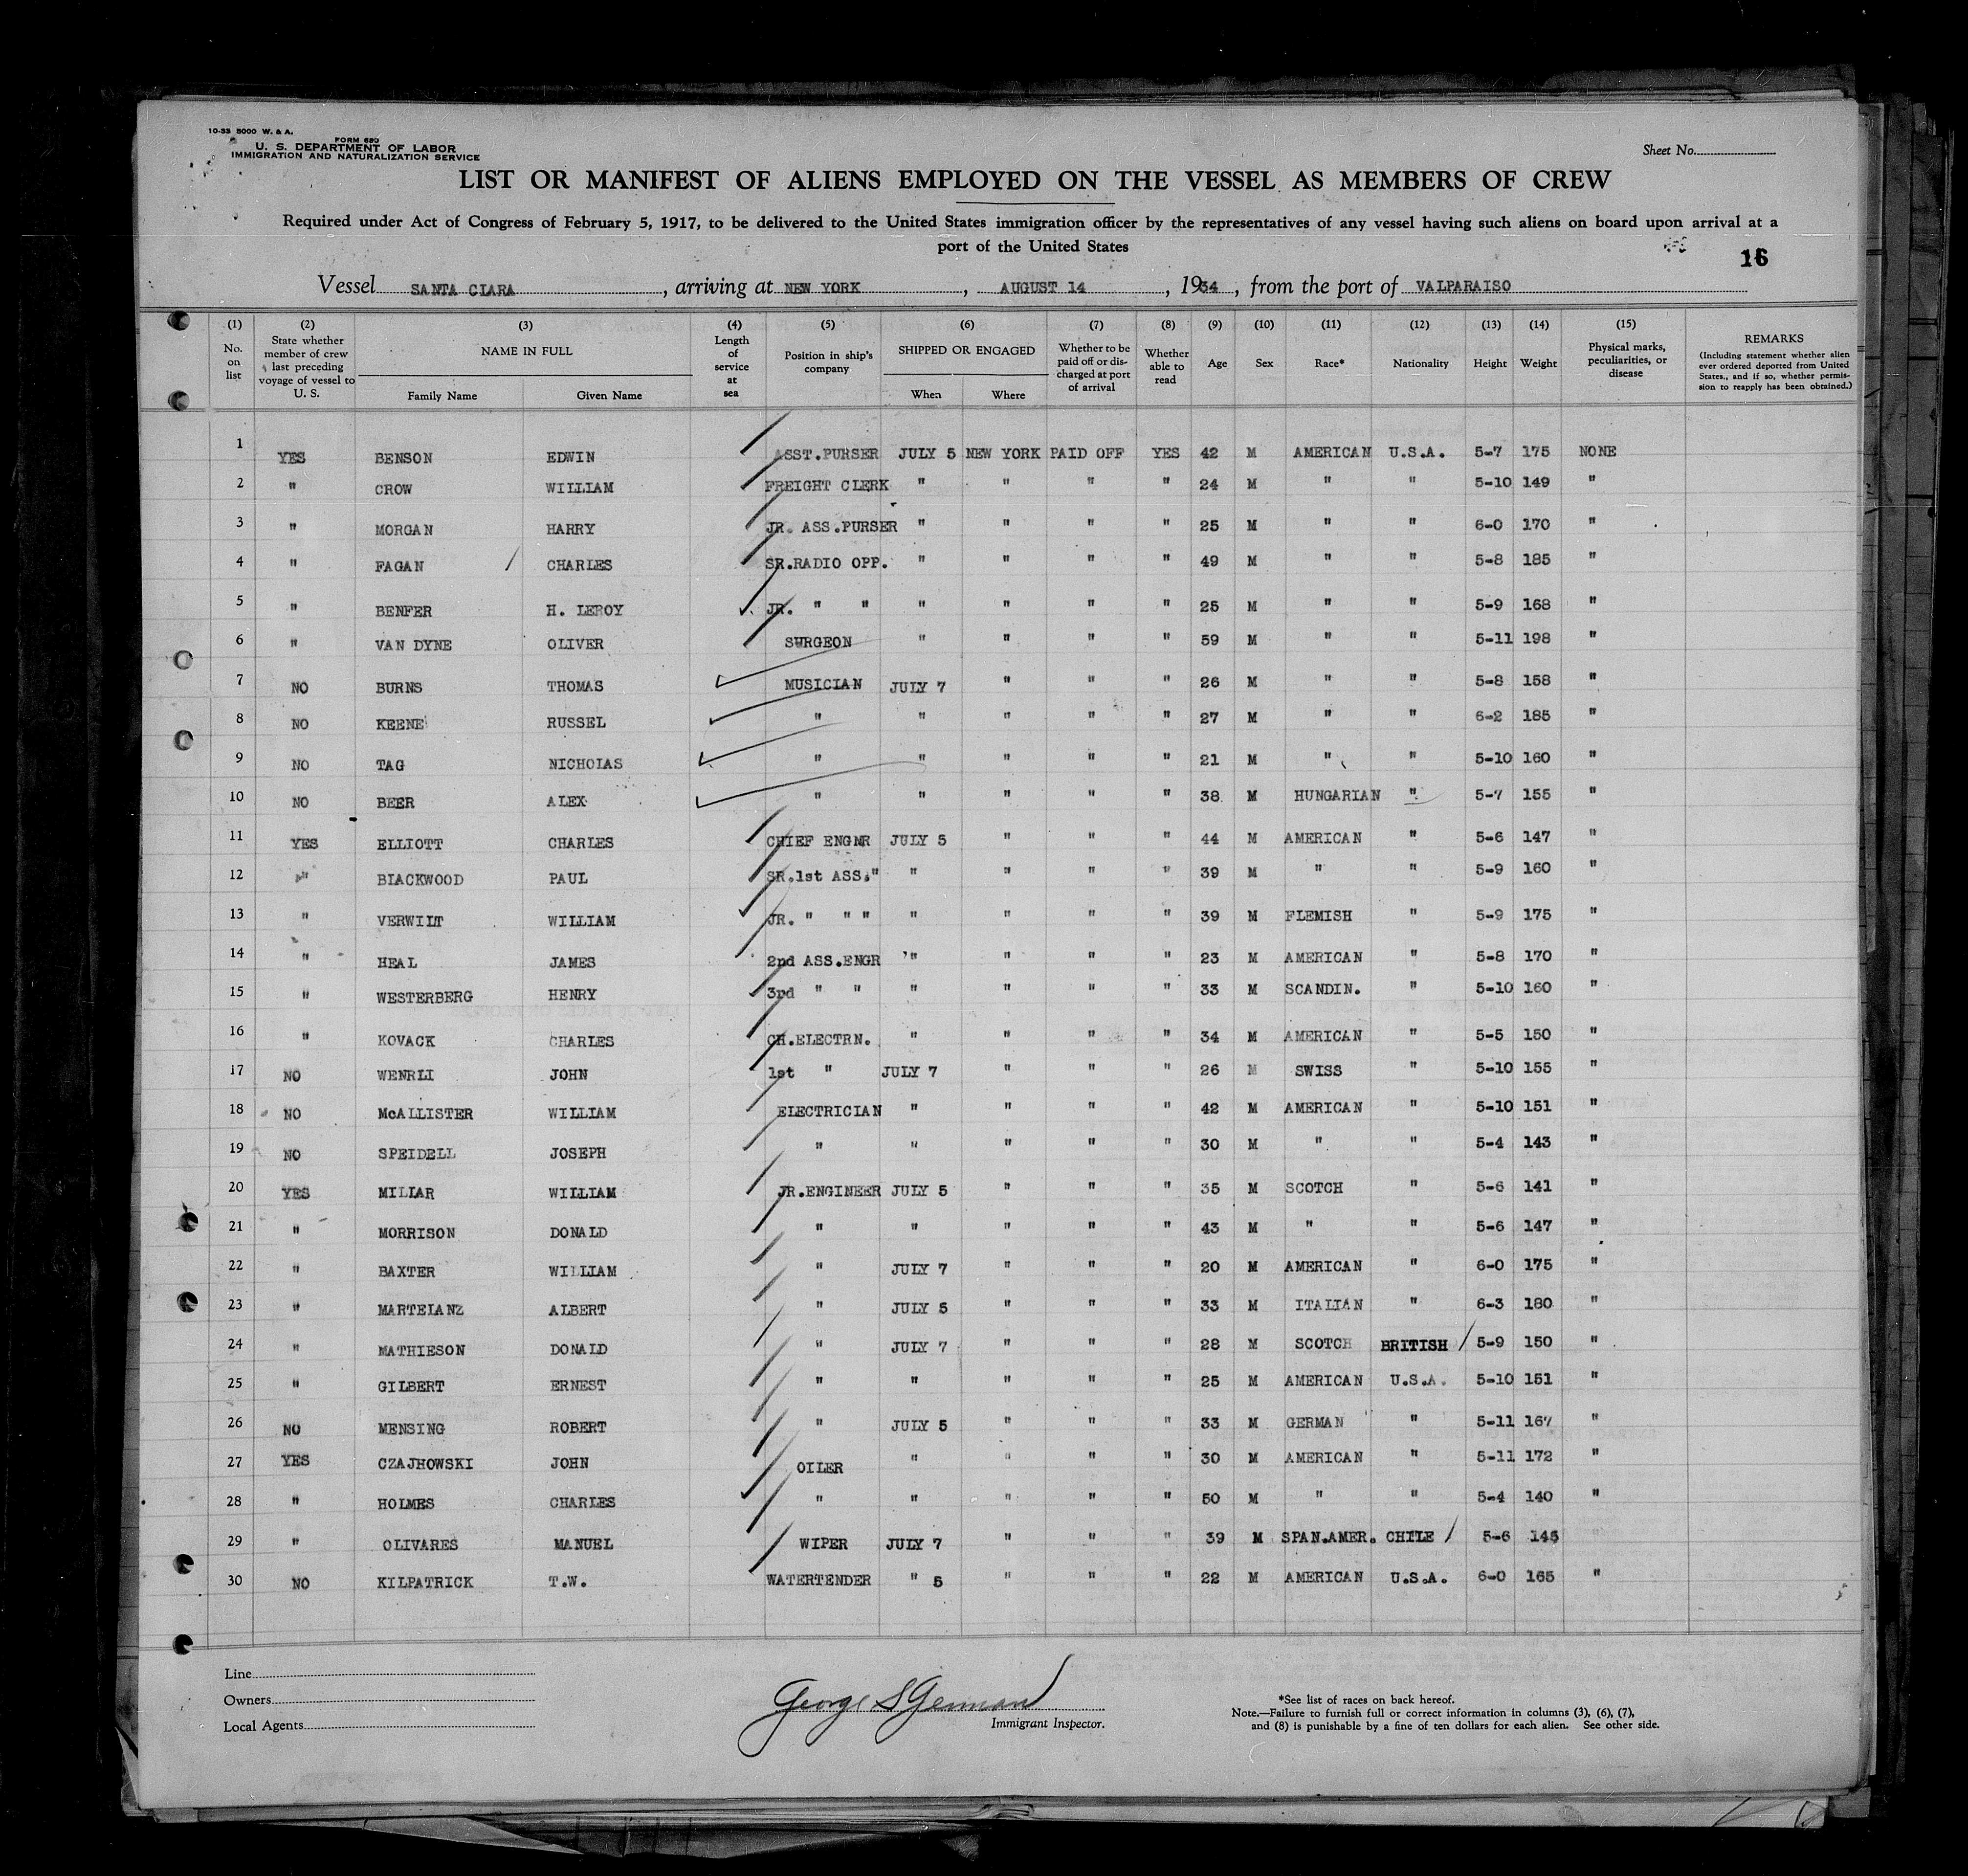 10-33 5000 W. & A.
FORM 680
U. S. DEPARTMENT OF LABOR
IMMIGRATION AND NATURALIZATION SERVICE
Sheet No.
LIST OR MANIFEST OF ALIENS EMPLOYED ON THE VESSEL AS MEMBERS OF CREW
Required under Act of Congress of February 5, 1917, to be delivered to the United States immigration officer by the representatives of any vessel having such aliens on board upon arrival at a
port of the United States
16
Vessel SANTA CLARA, arriving at NEW YORK, AUGUST 14, 1934, from the port of VALPARAISO
(1) No. on list (2) State whether member of crew last preceding voyage of vessel to U. S. (3) NAME IN FULL Family Name Given Name (4) Length of service at sea (5) Position in ship's company (6) SHIPPED OR ENGAGED When Where (7) Whether to be paid off or discharged at port of arrival (8) Whether able to read (9) Age (10) Sex (11) Race* (12) Nationality (13) Height (14) Weight (15) Physical marks, peculiarities, or disease REMARKS (Including statement whether alien ever ordered deported from United States, and if so, whether permission to reapply has been obtained.)
1 YES BENSON EDWIN ASST.PURSER JULY 5 NEW YORK PAID OFF YES 42 M AMERICAN U.S.A. 5-7 175 NONE
2 " CROW WILLIAM FREIGHT CLERK " " " " 24 M " " 5-10 149 "
3 " MORGAN HARRY JR. ASS.PURSER " " " " 25 M " " 6-0 170 "
4 " FAGAN CHARLES SR.RADIO OPP. " " " " 49 M " " 5-8 185 "
5 " BENFER H. LEROY JR. " " " " " " 25 M " " 5-9 168 "
6 " VAN DYNE OLIVER SURGEON " " " " 59 M " " 5-11 198 "
7 NO BURNS THOMAS MUSICIAN JULY 7 " " " 26 M " " 5-8 158 "
8 NO KEENE RUSSEL " " " " " 27 M " " 6-2 185 "
9 NO TAG NICHOLAS " " " " " 21 M " " 5-10 160 "
10 NO BEER ALEX " " " " " 38 M HUNGARIAN " 5-7 155 "
11 YES ELLIOTT CHARLES CHIEF ENGNR JULY 5 " " " 44 M AMERICAN " 5-6 147 "
12 " BLACKWOOD PAUL SR.1st ASS." " " " " 39 M " " 5-9 160 "
13 " VERWILT WILLIAM JR. " " " " " " " 39 M FLEMISH " 5-9 175 "
14 " HEAL JAMES 2nd ASS.ENGR " " " " 23 M AMERICAN " 5-8 170 "
15 " WESTERBERG HENRY 3rd " " " " " " 33 M SCANDIN. " 5-10 160 "
16 " KOVACK CHARLES CH.ELECTRN. " " " " 34 M AMERICAN " 5-5 150 "
17 NO WENRLI JOHN 1st " JULY 7 " " " 26 M SWISS " 5-10 155 "
18 NO McALLISTER WILLIAM ELECTRICIAN " " " " 42 M AMERICAN " 5-10 151 "
19 NO SPEIDELL JOSEPH " " " " " 30 M " " 5-4 143 "
20 YES MILLAR WILLIAM JR.ENGINEER JULY 5 " " " 35 M SCOTCH " 5-6 141 "
21 " MORRISON DONALD " " " " " 43 M " " 5-6 147 "
22 " BAXTER WILLIAM " JULY 7 " " " 20 M AMERICAN " 6-0 175 "
23 " MARTELANZ ALBERT " JULY 5 " " " 33 M ITALIAN " 6-3 180 "
24 " MATHIESON DONALD " JULY 7 " " " 28 M SCOTCH BRITISH 5-9 150 "
25 " GILBERT ERNEST " " " " " 25 M AMERICAN U.S.A. 5-10 151 "
26 NO MENSING ROBERT " JULY 5 " " " 33 M GERMAN " 5-11 167 "
27 YES CZAJHOWSKI JOHN OILER " " " " 30 M AMERICAN " 5-11 172 "
28 " HOLMES CHARLES " " " " " 50 M " " 5-4 140 "
29 " OLIVARES MANUEL WIPER JULY 7 " " " 39 M SPAN.AMER. CHILE 5-6 145
30 NO KILPATRICK T.W. WATERTENDER " 5 " " " 22 M AMERICAN U.S.A. 6-0 165 "
Line
Owners
Local Agents
George S German
Immigrant Inspector.
*See list of races on back hereof.
Note.—Failure to furnish full or correct information in columns (3), (6), (7),
and (8) is punishable by a fine of ten dollars for each alien. See other side.